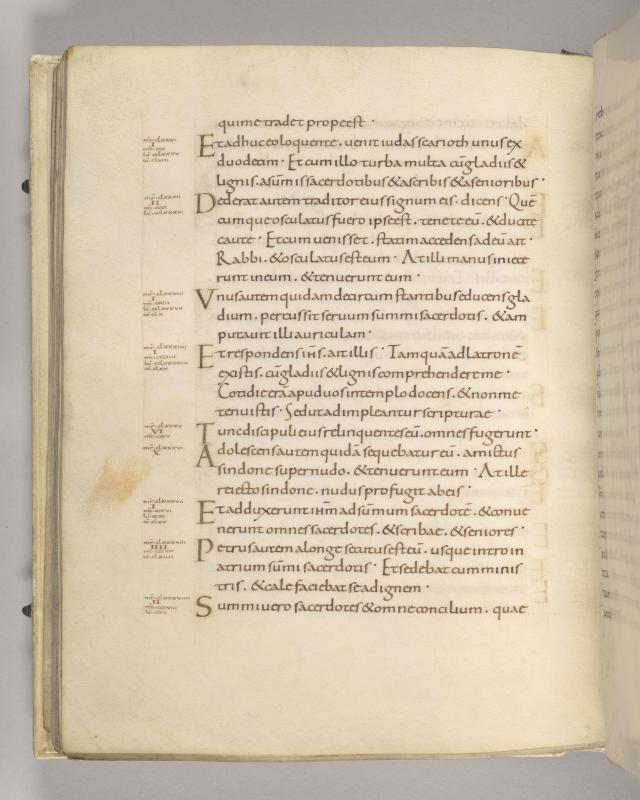 qui me tradet prope est ·
Et adhuc eo loquente. uenit iudas scarioth unus ex
duodecim · Et cum illo turba multa cū gladiis &
lignis. a sūmis sacerdotibus & a scribis & a senioribus ·
Dederat autem traditor eius signum eis. dicens · Quē
cumque osculatus fuero ipse est. tenete eū. & ducite
caute · Et cum uenisset. statim accedens ad eū ait ·
Rabbi. & osculatus est eum · At illi manus iniece
runt in eum. & tenuerunt eum ·
Unus autem quidam de circumstantibus educens gla
dium. percussit seruum summi sacerdotis. & am
putauit illi auriculam ·
Et respondens ih̄s. ait illis · Tamquā ad latronē
existis. cū gladiis & lignis comprehendere me ·
Cotidie erā apud uos in templo docens. & non me
tenuistis · Sed ut adimpleantur scripturae ·
Tunc discipuli eius relinquentes eū. omnes fugerunt ·
Adolescens autem quidā sequebatur eū. amictus
sindone super nudo. & tenuerunt eum · At ille
reiecto sindone. nudus profugit ab eis ·
Et adduxerunt ih̄m ad sūmum sacerdotē. & conue
nerunt omnes sacerdotes. & scribae. & seniores ·
Petrus autem a longe secutus est eū. usque intro in
atrium sūmi sacerdotis · Et sedebat cum minis
tris. & calefaciebat se ad ignem ·
Summi uero sacerdotes & omne concilium. quae